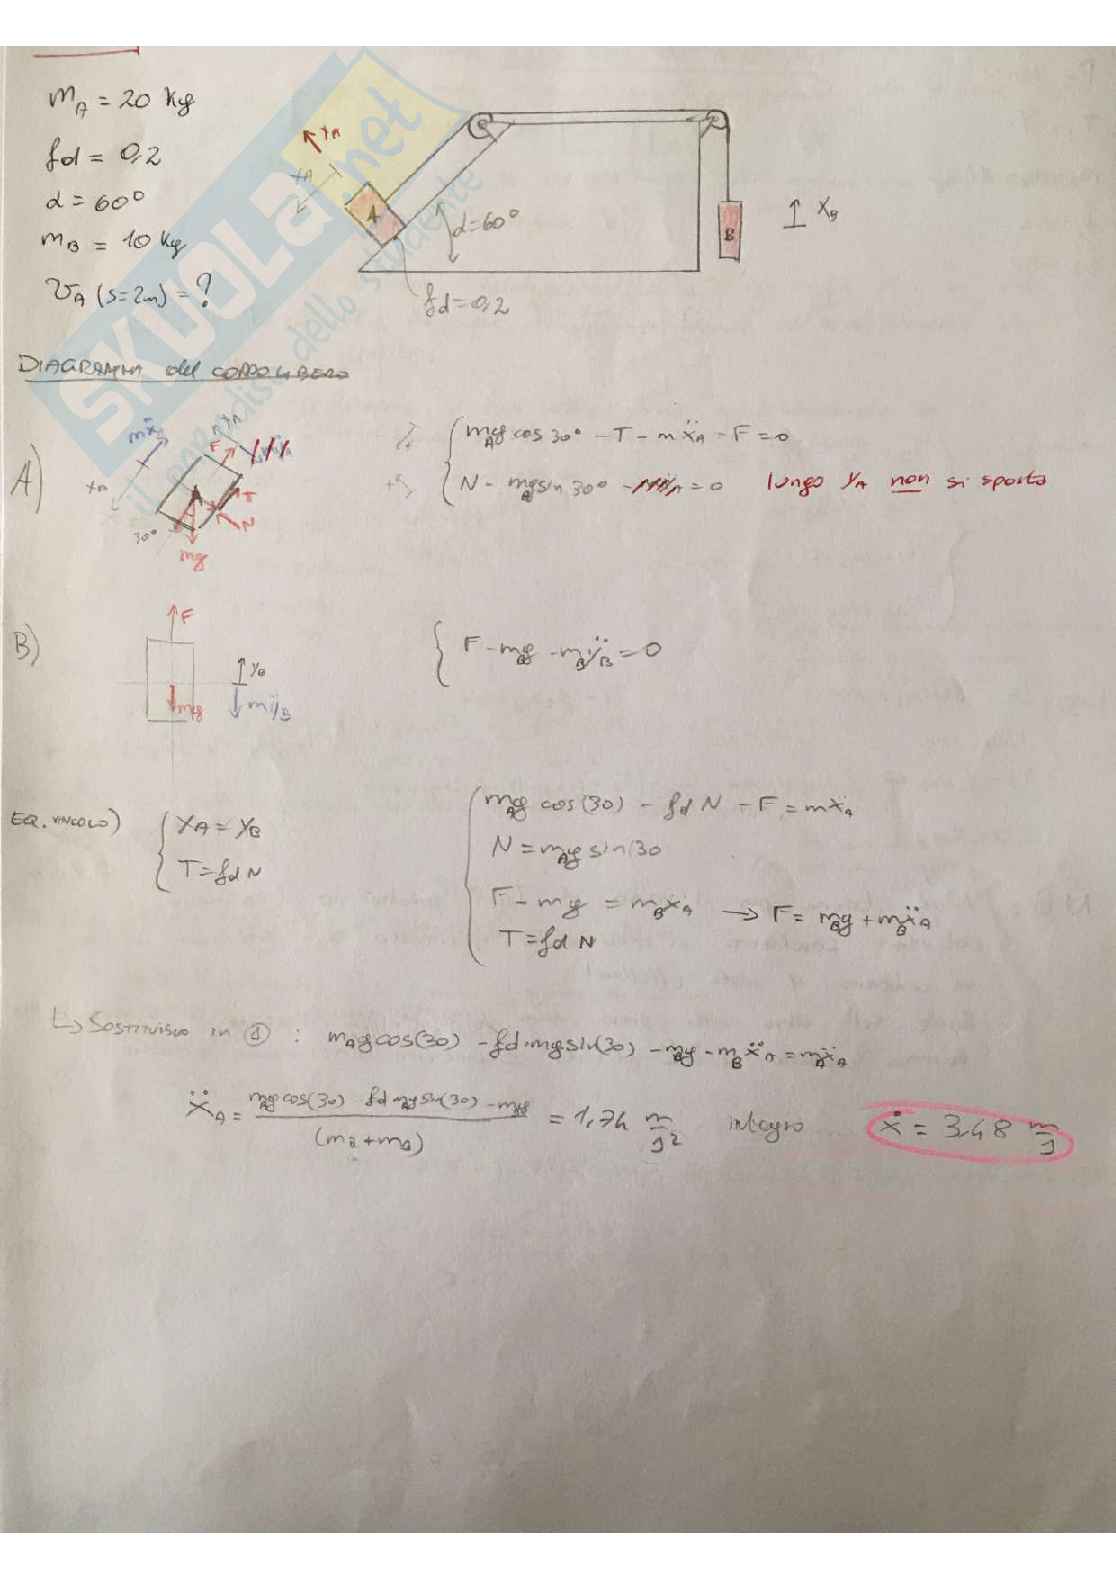 m_A = 20 Kg
fd = 0,2
α = 60°
m_B = 10 Kg
v_A (s=2m) = ?
y_A
x_A
A
α=60°
fd=0,2
B
x_B
SKUOLA.net
il paradiso dello studente
DIAGRAMMA del CORPO LIBERO
A)
mẍ
y_A
F
x_A
T
N
30°
mg
m_A g cos 30° - T - mẍ_A - F = 0
N - m_A g sin 30° - = 0 lungo y_A non si sposta
B)
F
mg
y_B
mÿ_B
F - m_B g - m_B ÿ_B = 0
EQ. VINCOLO)
x_A = y_B
T = fd N
m_A g cos(30) - fd N - F = mẍ_A
N = m_A g sin(30
F - mg = m_B ẍ_A → F = m_B g + m_B ẍ_A
T = fd N
↳ Sostituisco in ① : m_A g cos(30) - fd mg sin(30) - m_B g - m_B ẍ_A = m_A ẍ_A
ẍ_A = m_A g cos(30) fd m_A g sin(30) - m_B g / (m_B + m_A) = 1,74 m/s² integro ẋ = 3,48 m/s